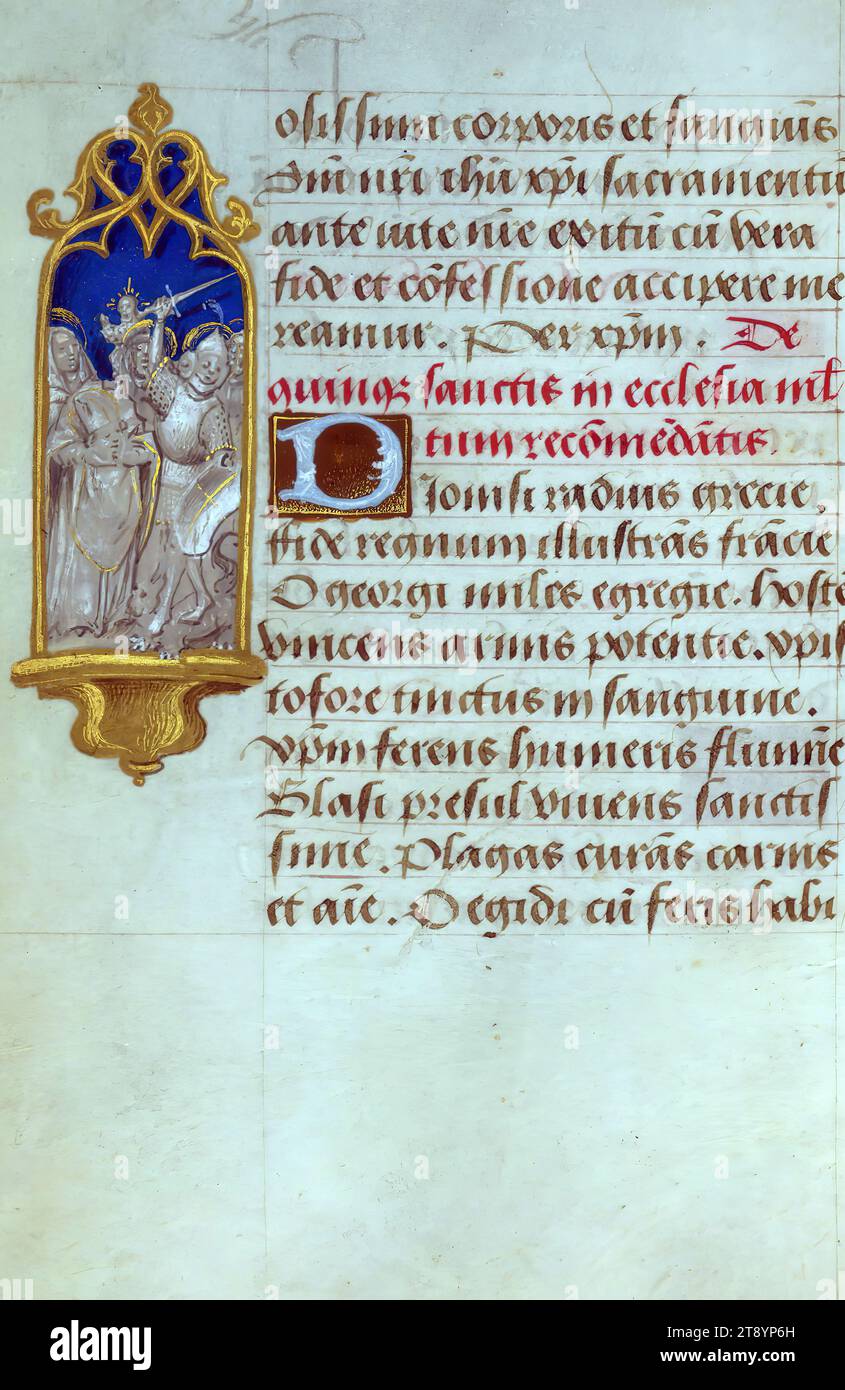 osissimi corporis et sanguinis
Dñi nr̃i ihũ xp̃i sacramentũ
ante iute nr̃e exitũ cũ vera
fide et cõfessione accipere me
reamur. Per xp̃m. De
quinq; sanctis in ecclesia ml̃
tum recõmẽdãtis.
Dionisi radius grecie.
ffide regnum illustrãs frãcie
O georgi miles egregie. hostẽ
vincens armis potentie. xp̃is
tofore tinctus in sanguine.
xp̃m ferens humeris flumĩne
Blasi presul vivens sanctis
sime. Plagas curãs carnis
et aĩe. O egidi cũ feris habi
a
alamy
Image ID: 2T8YP6H
www.alamy.com